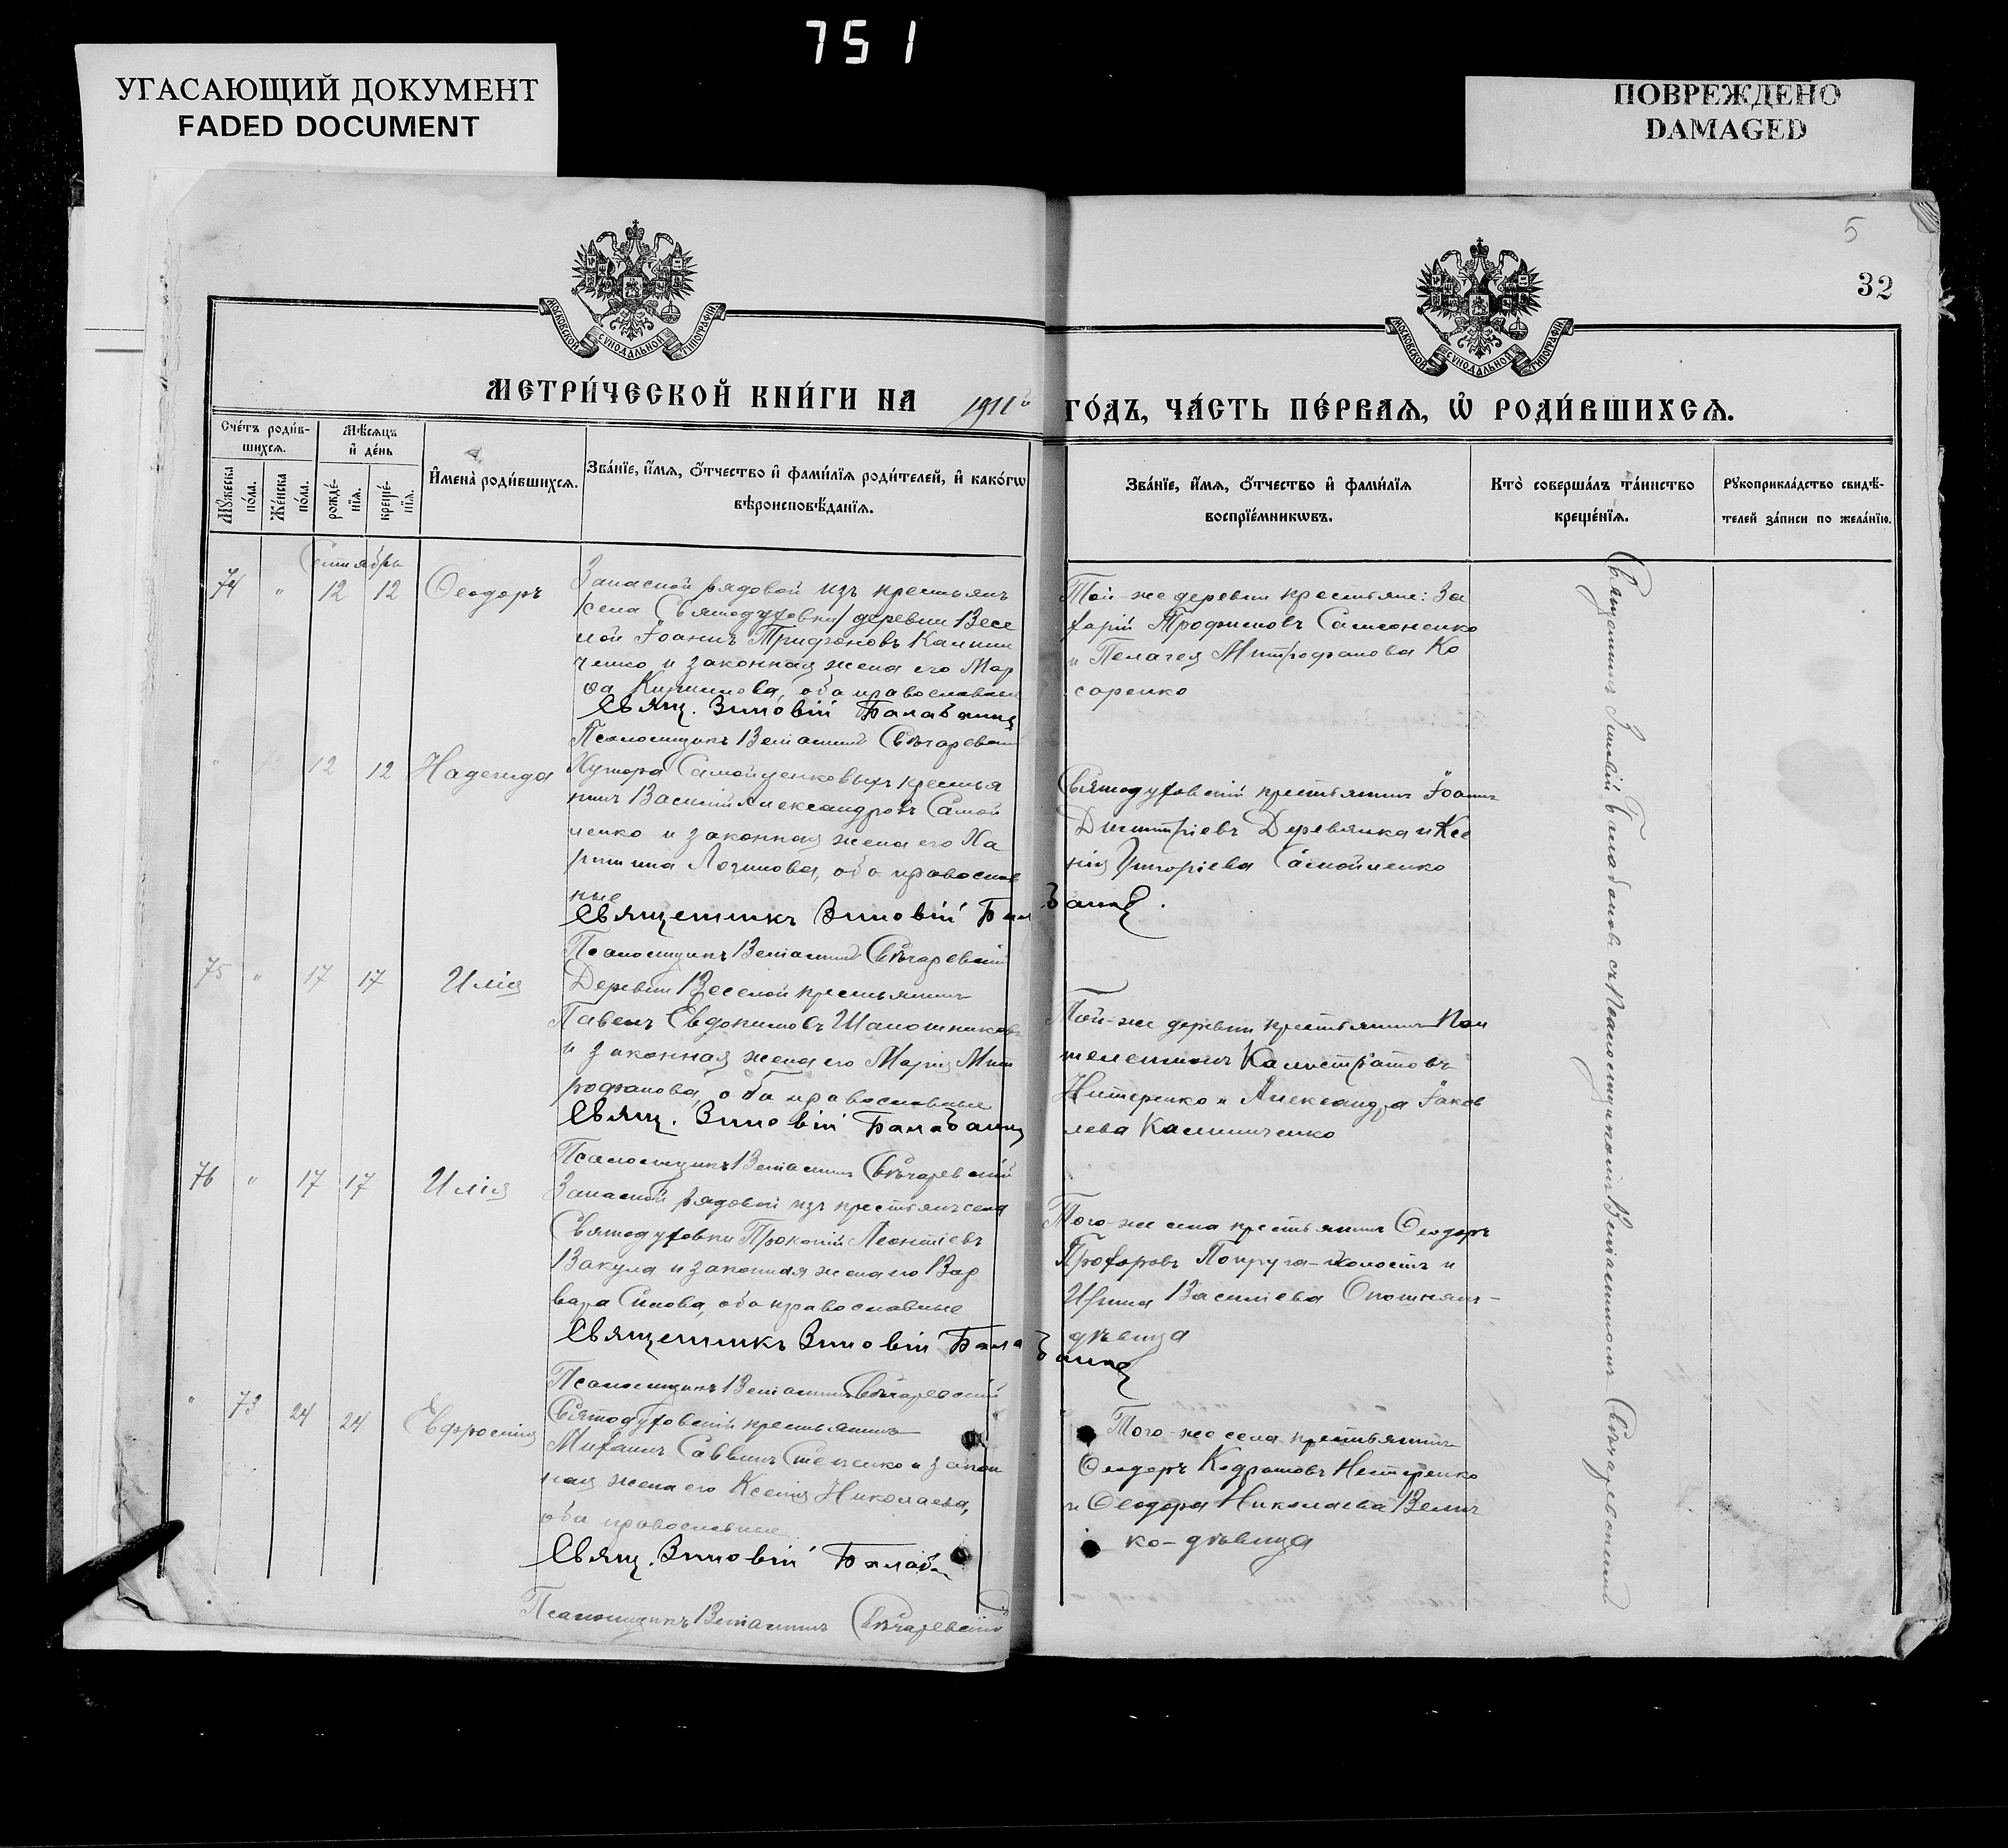 751
УГАСАЮЩИЙ ДОКУМЕНТ
FADED DOCUMENT
ПОВРЕЖДЕНО
DAMAGED
5
32
МОСКОВСКОЙ СѴНОДАЛЬНОЙ ТИПОГРАФІИ
МОСКОВСКОЙ СѴНОДАЛЬНОЙ ТИПОГРАФІИ
МЕТРИ́ЧЕСКОЙ КНИ́ГИ НА 1911й ГО́ДЪ, ЧА́СТЬ ПЕ́РВАѦ, Ѡ҆ РОДИ́ВШИХСѦ.
Сче́тъ роди́в-
шихсѧ.
Мѣ́сѧцъ
и҆ де́нь
Мꙋ́жеска
по́ла.
Же́нска
по́ла.
рожде́-
нїѧ.
креще́-
нїѧ.
И҆мена̀ роди́вшихсѧ.
Зва́нїе, и҆́мѧ, ѻ҆́тчество и҆ фами́лїѧ роди́телей, и҆ како́гѡ
вѣроисповѣ́данїѧ.
Зва́нїе, и҆́мѧ, ѻ҆́тчество и҆ фами́лїѧ
воспрїе́мникѡвъ.
Кто̀ соверша́лъ та́инство
креще́нїѧ.
Рꙋкоприкла́дство свидѣ́-
телей за́писи по жела́нїю.
Сентябрь
74 " 12 12 Ѳеодоръ
Запасной рядовой изъ крестьянъ
/села Святодуховки/ деревни Весе
лой Іоаннъ Трифоновъ Калини
ченко и законная жена его Мар
ѳа Кириллова, оба православные
Свящ. Зиновій Балабанов
Псаломщикъ Веніаминъ Свѣчаревскій
Той-же деревни крестьяне: За
харій Трофимовъ Самсоненко
и Пелагея Митрофанова Ко
саренко
" 12 12 Надежда
Хутора Самойленковыхъ крестья
нинъ Василій Александровъ Самой
ленко и законная жена его Ха
ритина Логинова, оба православ
ные
Священникъ Зиновій Балабанов.
Псаломщикъ Веніаминъ Свѣчаревскій
Святодуховскій крестьянинъ Іоаннъ
Димитріевъ Деревянка и Ксе
нія Григоріева Самойленко
75 " 17 17 Илія
Деревни Веселой крестьянинъ
Павелъ Евдокимовъ Шапошниковъ
и законная жена его Марія Мит
рофанова, оба православные
Свящ. Зиновій Балабанов
Псаломщикъ Веніаминъ Свѣчаревскій
Той-же деревни крестьянинъ Пан
телеимонъ Калистратовъ
Нетеренко и Александра Іаков
лева Калиниченко
76 " 17 17 Илія
Запасной рядовой изъ крестьянъ села
Святодуховки Прокопій Леонтіевъ
Вакула и законная жена его Вар
вара Силова, оба православные
Священникъ Зиновій Балабанов
Псаломщикъ Веніаминъ Свѣчаревскій
Того-же села крестьянинъ Ѳеодоръ
Прохоровъ Попруга-холостъ и
Ирина Василіева Опошнянъ-
дѣвица
" 73 24 24 Евфросинія
Святодуховскій крестьянинъ
Михаилъ Саввинъ Стеценко и закон
ная жена его Ксенія Николаева,
оба православные
Свящ. Зиновій Балабан
Псаломщикъ Веніаминъ Свѣчаревскій
Того-же села крестьянинъ
Ѳеодоръ Кодратовъ Нестеренко
и Ѳеодора Николаева Велич
ко-дѣвица
Священникъ Зиновій Балабановъ съ Псаломщикомъ Веніаминомъ Свѣчаревскимъ